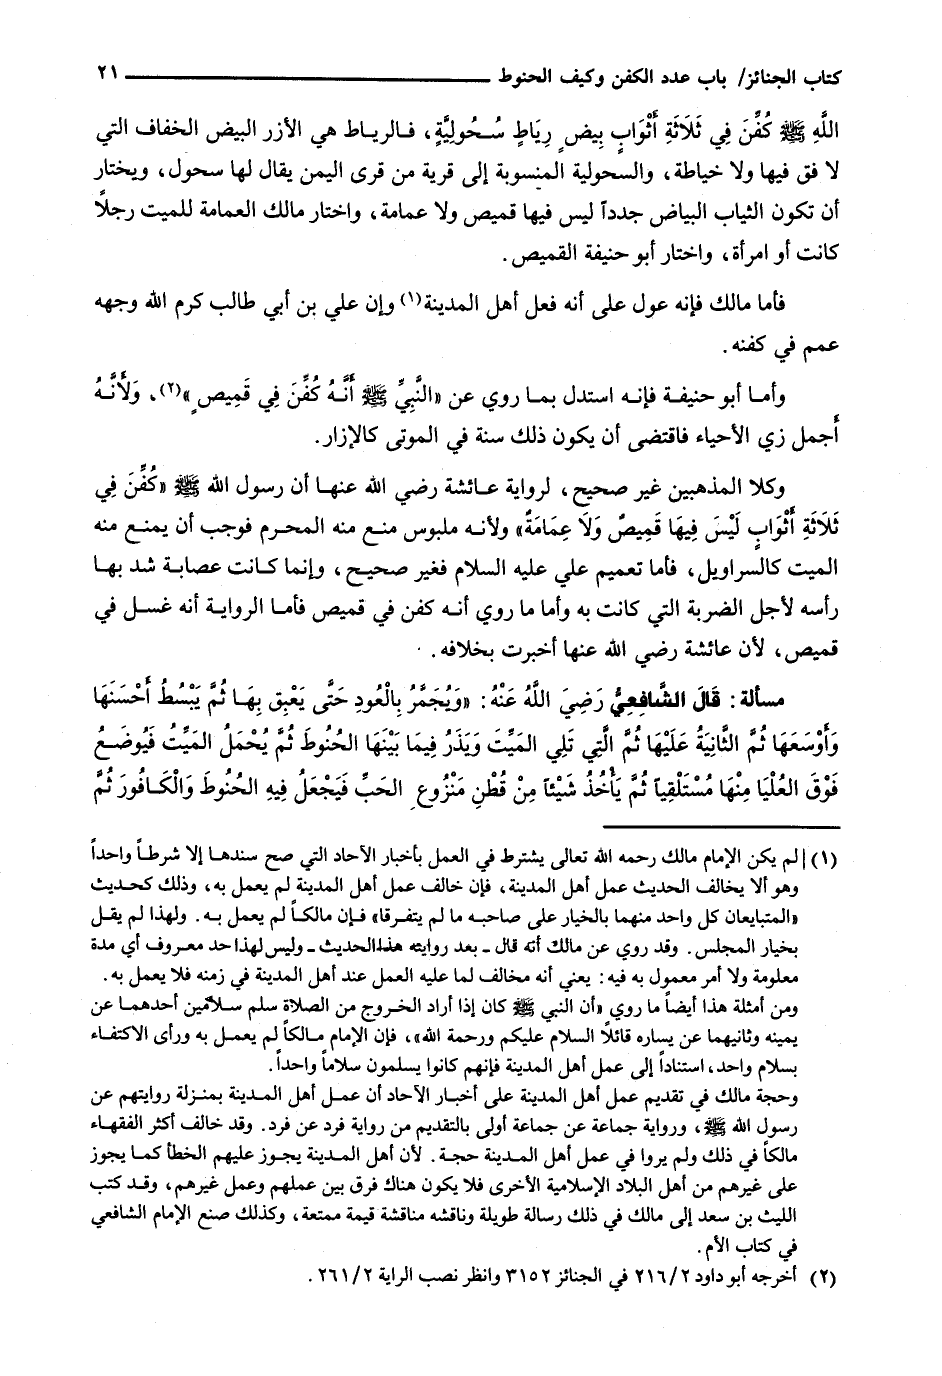 كتاب الجنائز/ باب عدد الكفن وكيف الحنوط ٢١
اللَّهِ ﷺ كُفِّنَ فِي ثَلَاثَةِ أَثْوَابٍ بِيضٍ رِيَاطٍ سُحُولِيَّةٍ، فالرياط هي الأزر البيض الخفاف التي
لا فق فيها ولا خياطة، والسحولية المنسوبة إلى قرية من قرى اليمن يقال لها سحول، ويختار
أن تكون الثياب البياض جدداً ليس فيها قميص ولا عمامة، واختار مالك العمامة للميت رجلاً
كانت أو امرأة، واختار أبو حنيفة القميص.
فأما مالك فإنه عول على أنه فعل أهل المدينة(١) وإن علي بن أبي طالب كرم الله وجهه
عمم في كفنه.
وأما أبو حنيفة فإنه استدل بما روي عن «النَّبِيِّ ﷺ أَنَّهُ كُفِّنَ فِي قَمِيصٍ»(٢)، وَلَأَنَّهُ
أجمل زي الأحياء فاقتضى أن يكون ذلك سنة في الموتى كالإزار.
وكلا المذهبين غير صحيح، لرواية عائشة رضي الله عنها أن رسول الله ﷺ «كُفِّنَ فِي
ثَلَاثَةِ أَثْوَابٍ لَيْسَ فِيهَا قَمِيصٌ وَلَا عِمَامَةٌ» ولأنه ملبوس منع منه المحرم فوجب أن يمنع منه
الميت كالسراويل، فأما تعميم علي عليه السلام فغير صحيح، وإنما كانت عصابة شد بها
رأسه لأجل الضربة التي كانت به وأما ما روي أنه كفن في قميص فأما الرواية أنه غسل في
قميص، لأن عائشة رضي الله عنها أخبرت بخلافه.
مسألة: قَالَ الشَّافِعِيُّ رَضِيَ اللَّهُ عَنْهُ: «وَيُجَمَّرُ بِالْعُودِ حَتَّى يَعْبِق بِهَا ثُمَّ يَبْسُطُ أَحْسَنَهَا
وَأَوْسَعَهَا ثُمَّ الثَّانِيَةُ عَلَيْهَا ثُمَّ الَّتِي تَلِي المَيِّتَ وَيَذَرُ فِيمَا بَيْنَهَا الحُنُوطَ ثُمَّ يُحْمَلُ المَيِّتُ فَيُوضَعُ
فَوْقَ العُلْيَا مِنْهَا مُسْتَلْقِياً ثُمَّ يَأْخُذُ شَيْئاً مِنْ قُطْنٍ مَنْزُوعِ الحَبِّ فَيَجْعَلُ فِيهِ الحُنُوطَ وَالْكَافُورَ ثُمَّ
(١) لم يكن الإمام مالك رحمه الله تعالى يشترط في العمل بأخبار الآحاد التي صح سندها إلا شرطاً واحداً
وهو ألا يخالف الحديث عمل أهل المدينة، فإن خالف عمل أهل المدينة لم يعمل به، وذلك كحديث
«المتبايعان كل واحد منهما بالخيار على صاحبه ما لم يتفرقا» فإن مالكاً لم يعمل به. ولهذا لم يقل
بخيار المجلس. وقد روي عن مالك أنه قال ـ بعد روايته هذا الحديث ـ وليس لهذا حد معروف أي مدة
معلومة ولا أمر معمول به فيه: يعني أنه مخالف لما عليه العمل عند أهل المدينة في زمنه فلا يعمل به.
ومن أمثلة هذا أيضاً ما روي «أن النبي ﷺ كان إذا أراد الخروج من الصلاة سلم سلامين أحدهما عن
يمينه وثانيهما عن يساره قائلاً السلام عليكم ورحمة الله»، فإن الإمام مالكاً لم يعمل به ورأى الاكتفاء
بسلام واحد، استناداً إلى عمل أهل المدينة فإنهم كانوا يسلمون سلاماً واحداً.
وحجة مالك في تقديم عمل أهل المدينة على أخبار الآحاد أن عمل أهل المدينة بمنزلة روايتهم عن
رسول الله ﷺ، ورواية جماعة عن جماعة أولى بالتقديم من رواية فرد عن فرد. وقد خالف أكثر الفقهاء
مالكاً في ذلك ولم يروا في عمل أهل المدينة حجة. لأن أهل المدينة يجوز عليهم الخطأ كما يجوز
على غيرهم من أهل البلاد الإسلامية الأخرى فلا يكون هناك فرق بين عملهم وعمل غيرهم، وقد كتب
الليث بن سعد إلى مالك في ذلك رسالة طويلة وناقشه مناقشة قيمة ممتعة، وكذلك صنع الإمام الشافعي
في كتاب الأم.
(٢) أخرجه أبو داود ٢١٦/٢ في الجنائز ٣١٥٢ وانظر نصب الراية ٢٦١/٢.